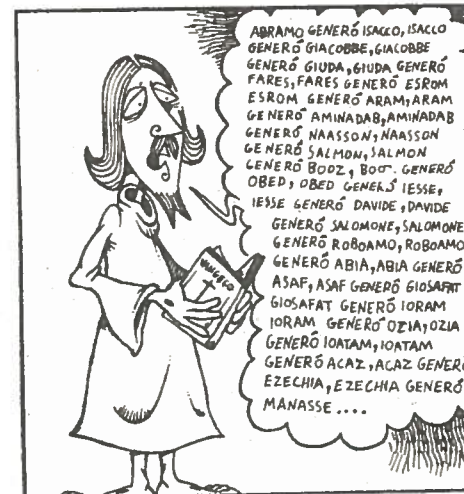 ABRAMO GENERÓ ISACCO, ISACCO
GENERÓ GIACOBBE, GIACOBBE
GENERÓ GIUDA, GIUDA GENERÓ
FARES, FARES GENERÓ ESROM
ESROM GENERÓ ARAM, ARAM
GENERÓ AMINADAB, AMINADAB
GENERÓ NAASSON, NAASSON
GENERÓ SALMON, SALMON
GENERÓ BOOZ, GENERÓ
OBED, OBED GENERÓ IESSE,
IESSE GENERÓ DAVIDE, DAVIDE
GENERÓ SALOMONE, SALOMONE
GENERÓ ROBOAMO, ROBOAMO
GENERÓ ABIA, ABIA GENERÓ
ASAF, ASAF GENERÓ GIOSAFAT
GIOSAFAT GENERÓ IORAM
IORAM GENERÓ OZIA, OZIA
GENERÓ IOATAM, IOATAM
GENERÓ ACAZ, ACAZ GENERÓ
EZECHIA, EZECHIA GENERÓ
MANASSE....